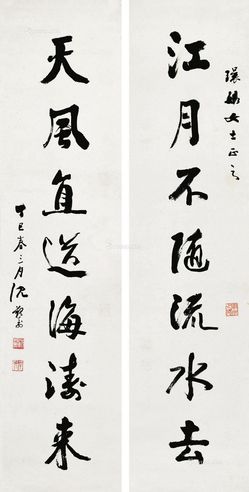 女士正之
江月不隨流水去
天風直送海濤來
巳春三月沈